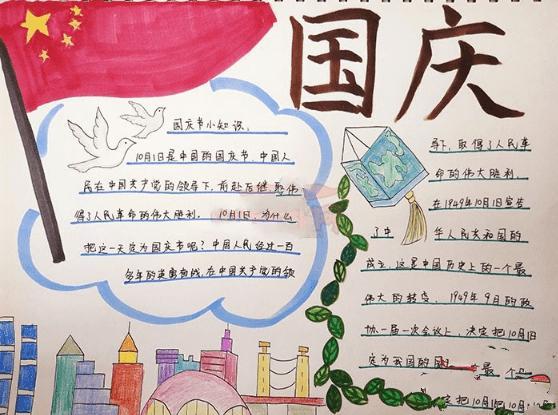 国庆
国庆节小知识:
10月1日是中国的国庆节,中国人
民在中国共产党的领导下,前赴后继
得了人民革命的伟大胜利。 10月1日,为什么
把这一天定为国庆节呢?中国人民经过一百
多年的英勇奋战,在中国共产党的领
导下,取得了人民革
命的伟大胜利.
在1949年10月1日宣告
了中 华人民共和国的
成立,这是中国历史上的一个最
伟大的转变。1949年9月的政
协一届一次会议上,决定把10月1日
定为我国的国 最 个
定把10月1把10月